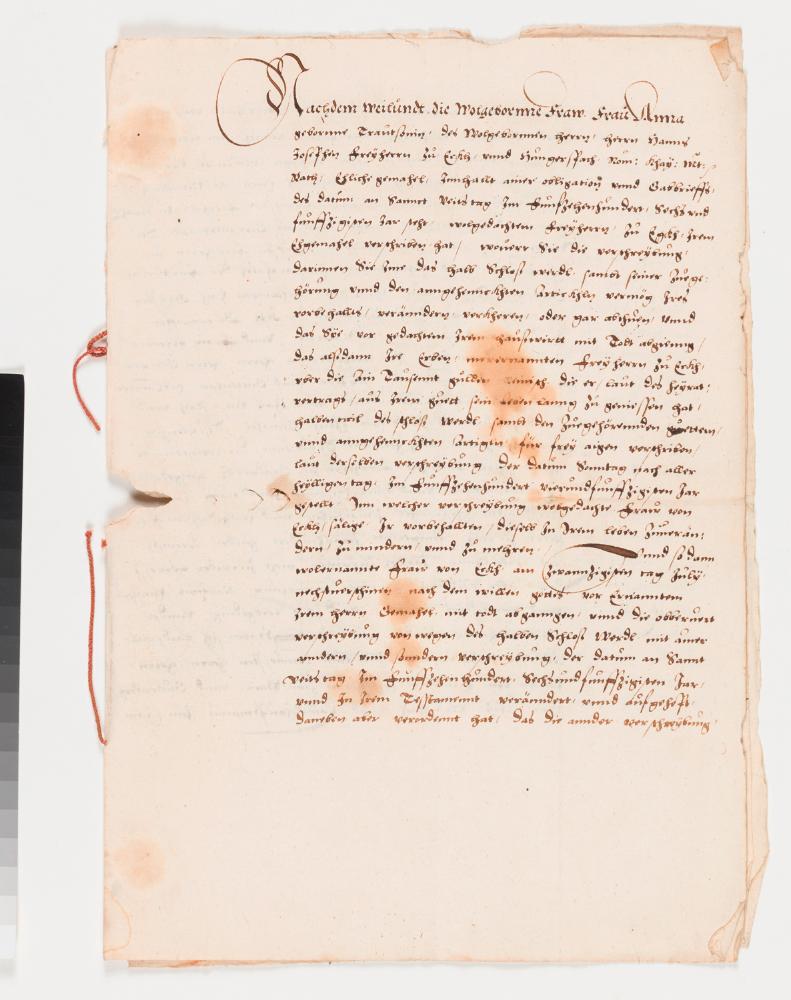 Nachdem weilundt die Wolgeborne Fraw Fraw Anna
gebornne Trautsonin, des Wolgebornnen herrn, herrn Hanns
Josephen Freyherrn zu Eckh, vnnd Hungerspach, Röm: Khay: Mt:
Rath, Ehliche gemahel, Innhallt ainer obligation vnnd Gabbrieffs,
des datum an Sannct Veitstag Im Funfzehenhundert, Sechs vnd
funffzigisten Jar steht, wolgedachtem Freyherrn zu Egkh, Irem
Ehgemahel verschriben hat, wouerr Sie die verschreybung,
darinnen Sie Ime das halb Schloß Werdl, sambt seiner Zuege-
hörung vnnd den anngehennckhten Artickhln vermög Ires
vorbehallts, verändern, verkheren, oder gar abthuen, vnnd
das Sye, vor gedachtem Irem Haußwirtt mit Todt abgienng,
das alßdann Ire Erben, merernannten Freyherrn zu Eckh,
vber die Ain Tausennt gulden Reinisch, die er, laut des heyrat-
vertrags, aus Irem guett sein leben lanng zu geniessen hat,
halben tail des schloß Werdl, sambt den Zuegehörennden guettern,
vnnd anngehennckhten Artigln, für frey aigen verschriben,
laut derselben verschreybung, der datum Sonntag nach aller
heylligen tag, Im Funffzehenhundert vierundfunffzigisten Jar
gestellt, Inn welcher verschreybung wolgedachte Fraw von
Eckh, sälige, Ir vorbehallten, dieselb In Irem leben Zuuerän-
dern, zu mindern, vnnd zu mehren, Vnnd so dann
wolernannte Fraw von Eckh, am Zwannzigisten tag July,
nechstuerschinen, nach dem willen gottes, vor Ernanntem
Irem herrn Gemahel, mit todt abganngen, vnnd die obberuert
verschreybung von wegen des halben Schloß Werdl mit ainer
anndern, vnnd sondern verschreybung, der datum an Sannt
Veitstag Im Funffzehenhundert, Sechsundfunffzigisten Jar,
vnnd In Irem Testament, verändert, vnnd aufgehebt,
daneben aber verordennt hat, das die annder verschreybung,